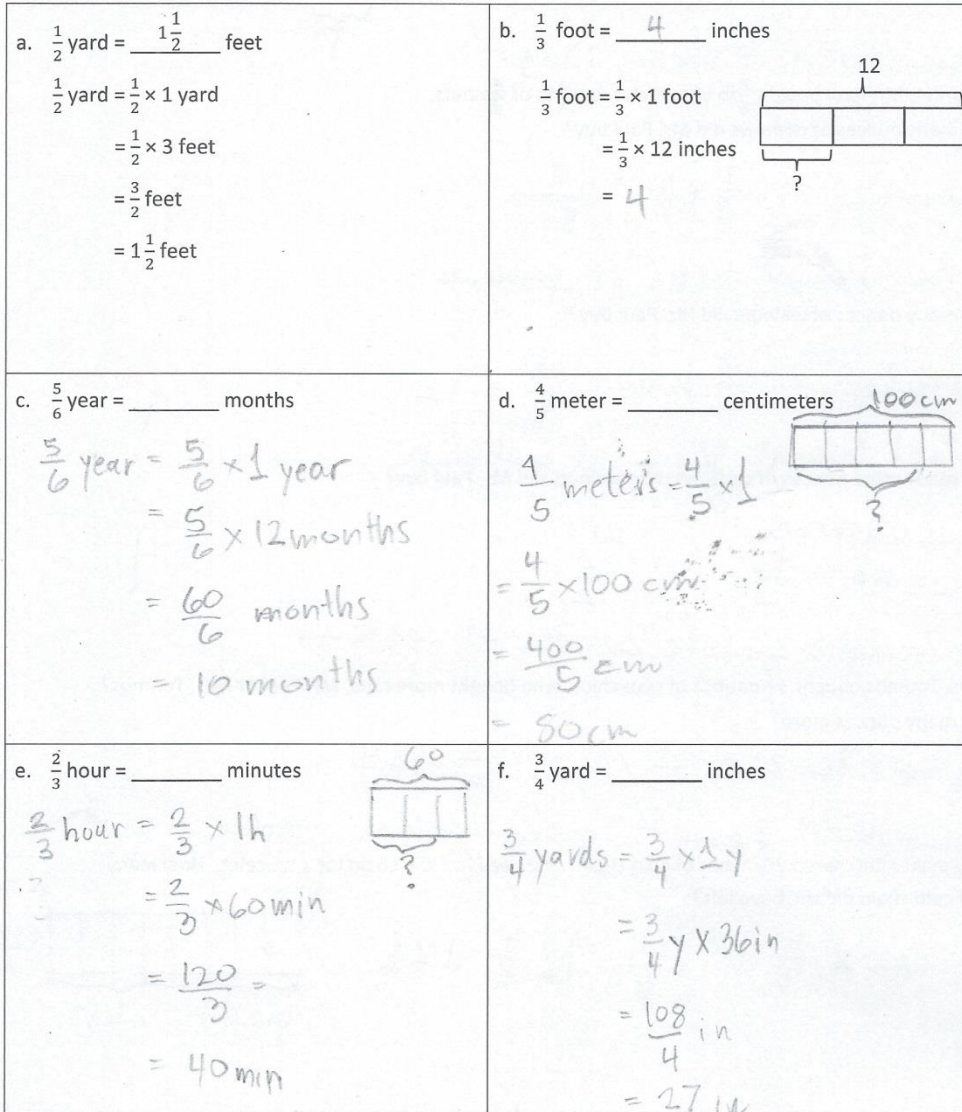 a. 1/2 yard = 1 1/2 feet
1/2 yard = 1/2 × 1 yard
= 1/2 × 3 feet
= 3/2 feet
= 1 1/2 feet
b. 1/3 foot = 4 inches
1/3 foot = 1/3 × 1 foot
= 1/3 × 12 inches
= 4
12
?
c. 5/6 year = ________ months
5/6 year = 5/6 × 1 year
= 5/6 × 12 months
= 60/6 months
= 10 months
d. 4/5 meter = ________ centimeters
100 cm
?
4/5 meters = 4/5 × 1
= 4/5 × 100 cm
= 400/5 cm
= 80 cm
e. 2/3 hour = ________ minutes
60
?
2/3 hour = 2/3 × 1h
= 2/3 × 60 min
= 120/3 =
= 40 min
f. 3/4 yard = ________ inches
3/4 yards = 3/4 × 1 y
= 3/4 y × 36 in
= 108/4 in
= 27 in